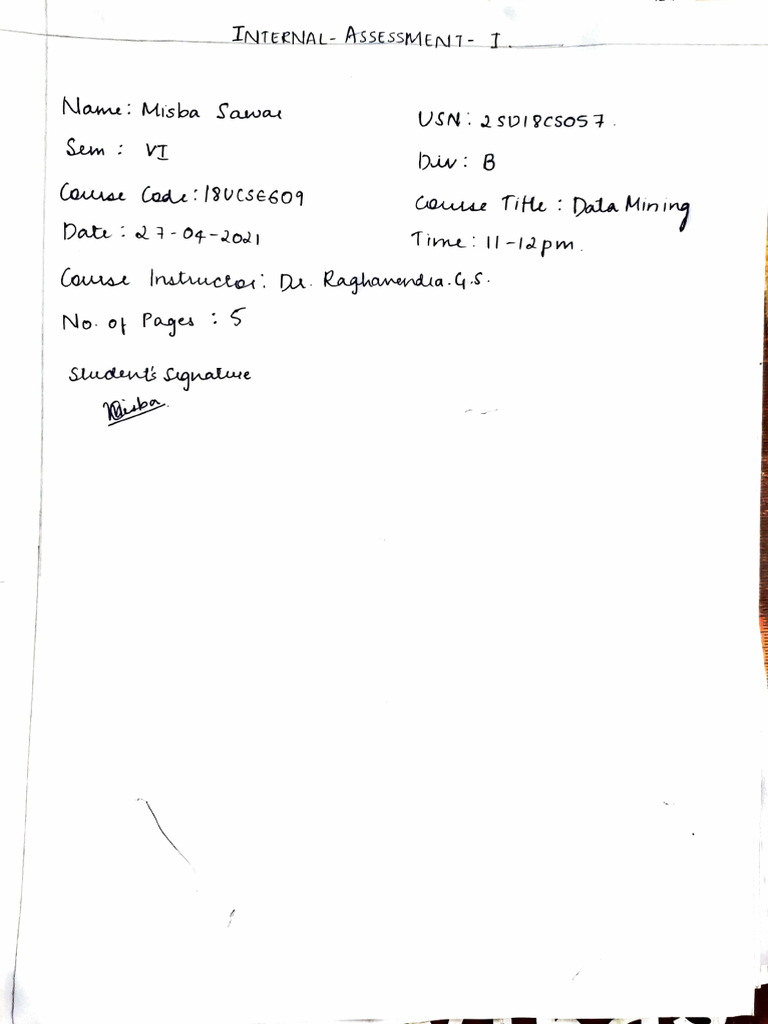 INTERNAL- ASSESSMENT- I.
Name: Misba Sawar
USN: 2SD18CS057.
Sem: VI
Div: B
Course Code: 18UCSE609
Course Title: Data Mining
Date: 27-04-2021
Time: 11-12pm.
Course Instructor: Dr. Raghavendra.G.S.
No. of Pages: 5
Student's Signature
Misba.